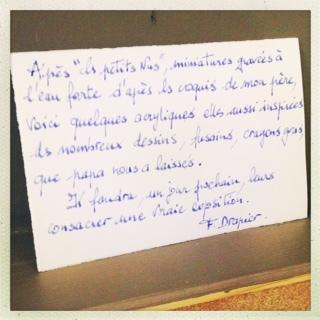 Après "Les petits Nus", miniatures gravées à
l'eau forte d'après les croquis de mon père,
Voici quelques acryliques elles aussi inspirées
des nombreux dessins, fusains, crayons gras
que papa nous a laissés.
Il faudra, un jour prochain, leurs
consacrer une vraie exposition.
F. Drapier.